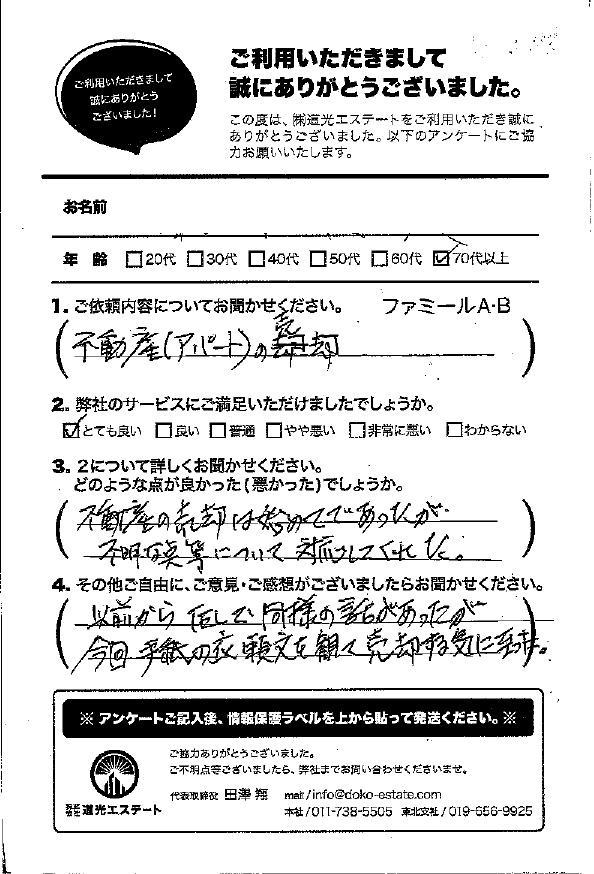 ご利用いただきまして
誠にありがとう
ございました!
ご利用いただきまして
誠にありがとうございました。
この度は、㈱道光エステートをご利用いただき誠に
ありがとうございました。以下のアンケートにご協
力お願いいたします。
お名前
年 齢 □20代 □30代 □40代 □50代 □60代 ☑70代以上
1. ご依頼内容についてお聞かせください。 ファミールA・B
不動産(アパート)の売却
2. 弊社のサービスにご満足いただけましたでしょうか。
☑とても良い □良い □普通 □やや悪い □非常に悪い □わからない
3. 2について詳しくお聞かせください。
どのような点が良かった(悪かった)でしょうか。
不動産の売却は始めてであったが
不明な点等について対応してくれた。
4. その他ご自由に、ご意見・ご感想がございましたらお聞かせください。
以前から 同様の話があったが
今回手紙の依頼文を観て売却する気に
※ アンケートご記入後、情報保護ラベルを上から貼って発送ください。※
ご協力ありがとうございました。
ご不明点等ございましたら、弊社までお問い合わせくださいませ。
株式会社 道光エステート
代表取締役 田澤 翔 mail/info@doko-estate.com
本社/011-738-5505 東北支社/019-656-9925